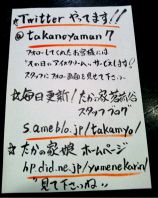 Twitterやってます!!
@takanoyaman7
フォローしてくれたお客様には
"本日のアイスクリーム"サービスします!
スタッフにフォロー画面を見せて下さい
☆毎日更新!たかの家
スタッフブログ
s.ameblo.jp/takamyo/
☆たかの家娘ホームページ
hp.did.ne.jp/yumenekarin/
"見て下さいね"